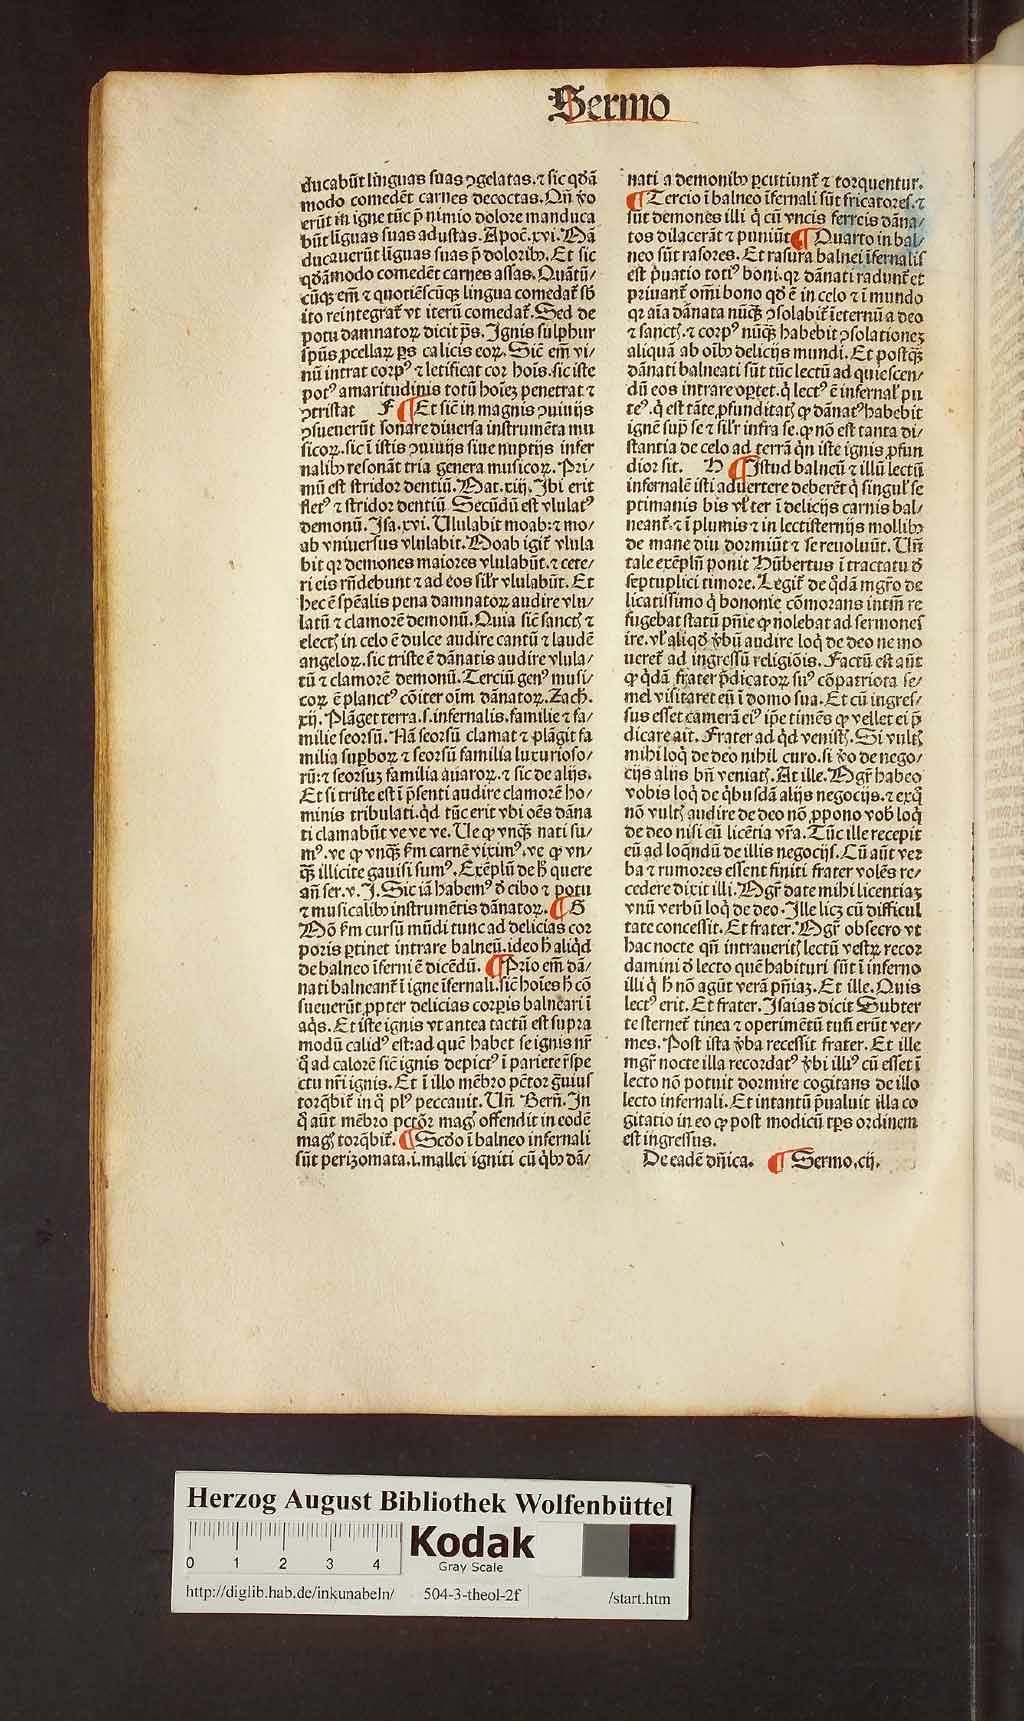 Sermo
ducabūt linguas suas ꝯgelatas.⁊ sic qđā
modo comedēt carnes decoctas. Qn̄ ꝟo
erūt in igne tūc p̄ nimio dolore manduca
būt linguas suas adustas. Apoc̄. xvi. Mā
ducauerūt linguas suas p̄ doloribꝰ. Et sic
qđāmodo comedēt carnes assas. Quātū/
cūqꝫ em̄ ⁊ quotiēscūqꝫ lingua comedat᷑ sb̄
ito reintegrat᷑ vt iterū comedat᷑. Sed de
potu damnatoꝝ dicit p̄s. Ignis sulphur
sp̄us ꝓcellaꝝ ps calicis eoꝝ. Sic̄ em̄ vi/
nū intrat corpꝰ ⁊ letificat cor hoīs. sic iste
potꝰ amaritudinis totū hoīez penetrat ⁊
ꝯtristat F ¶ Et sic̄ in magnis ꝯuiuijs
ꝯsueuerūt sonare diuersa instrumēta mu
sicoꝝ. sic ī istis ꝯuiuijs siue nuptijs infer
nalibꝰ resonāt tria genera musicoꝝ. Pri/
mū est stridor dentiū. Mat. xiij. Ibi erit
fletꝰ ⁊ stridor dentiū. Secūdū est vlulatꝰ
demonū. Isa. xvi. Ululabit moab: ⁊ mo/
ab vniuersus vlulabit. Moab igit᷑ vlula
bit qꝛ demones maiores vlulabūt. ⁊ cete/
ri eis rn̄debunt ⁊ ad eos sil'r vlulabūt. Et
hec ē sp̄ealis pena damnatoꝝ audire vlu/
latū ⁊ clamorē demonū. Quia sic̄ sanctꝭ ⁊
electꝭ in celo ē dulce audire cantū ⁊ laudē
angeloꝝ. sic triste ē dānatis audire vlula/
tū ⁊ clamorē demonū. Terciū genꝰ musi/
coꝝ ē planctꝰ cōiter oīm dānatoꝝ. Zach.
xij. Plāget terra. s. infernalis. familie ⁊ fa/
milie seorsū. Nā seorsū clamat ⁊ plāgit fa
milia suꝑboꝝ ⁊ seorsū familia luxurioso/
rū: ⁊ seorsuꝫ familia auaroꝝ. ⁊ sic de alijs.
Et si triste est ī p̄senti audire clamorē ho/
minis tribulati. qd tūc erit vbi oēs dāna
ti clamabūt ve ve ve. Ue ꝙ vnqꝫ nati su/
mꝰ. ve ꝙ vnqꝫ km̄ carnē viximꝰ. ve ꝙ vn/
qꝫ illicite gauisi sumꝰ. Exēplū de h̄ quere
an̄ ser. v. J. Sic iā habemꝰ đ cibo ⁊ potu
⁊ musicalibꝰ instrumētis dānatoꝝ. ¶ G
Nō km̄ cursū mūdi tunc ad delicias cor
poris ꝑtinet intrare balneū. ideo h̄ aliqd
de balneo īferni ē dicēdū. ¶ Prīo em̄ dā/
nati balneant᷑ ī igne īfernali. sic̄ hoīes h̄ cō
sueuerūt ꝓpter delicias corꝑis balneari ī
aqꝭ. Et iste ignis vt antea tactū est supra
modū calidꝰ est: ad quē habet se ignis nr̄
qͣ ad calorē sic̄ ignis depictꝰ ī pariete rs̄pe
ctu nr̄i ignis. Et ī illo mēbro pc̄tor g̊uius
torq̄bit᷑ in q̊ plꝰ peccauit. Un̄ Bern̄. In
q̊ aūt mēbro pctōr magꝭ offendit in eodē
magꝭ torq̄bit᷑. ¶ Scđo ī balneo infernali
sūt perizomata. i. mallei igniti cū q̄bꝰ dā/
nati a demonibꝰ ꝑcutiunt᷑ ⁊ torquentur.
¶ Tercio ī balneo īfernali sūt fricatores. ⁊
sūt demones illi q̇ cū vncis ferreis dāna/
tos dilacerāt ⁊ puniūt ¶ Quarto in bal/
neo sūt rasores. Et rasura balnei īfernalis
est p̄uatio totiꝰ boni. qꝛ dānati radunt᷑ et
priuant᷑ om̄i bono qđ ē in celo ⁊ ī mundo
qꝛ aīa dānata nūqꝫ ꝯsolabit᷑ īeternū a deo
⁊ sanctꝭ. ⁊ corpꝰ nūqꝫ habebit ꝯsolationeꝫ
aliquā ab oībꝰ delicijs mundi. Et postqꝫ
dānati balneati sūt tūc lectū ad quiescen/
dū eos intrare oꝑtet. q̇ lectꝰ ē infernal' pu
teꝰ. q̇ est tāte ꝓfunditatꝭ ꝙ dānatꝰ habebit
ignē sup̄ se ⁊ sil'r infra se. ꝙ nō est tanta di/
stantia de celo ad terrā q̄n iste ignis ꝓfun
dior sit. H ¶ Istud balneū ⁊ illū lectū
infernalē isti aduertere deberēt q̇ singul' se
ptimanis bis vl' ter ī delicijs carnis bal/
neant᷑. ⁊ ī plumis ⁊ in lectisternijs mollibꝰ
de mane diu dormiūt ⁊ se reuoluūt. Un̄
tale exēplū ponit Hūbertus ī tractatu đ
septuplici timore. Legit᷑ de qͦdā mgr̄o de
licatissimo q̇ bononie cōmorans intm̄ re
fugebat statū pn̄ie ꝙ nolebat ad sermones
ire. vl' aliqđ ꝟbū audire loq̇ de deo ne mo
ueret᷑ ad ingressū religiōis. Factū est aūt
ꝙ qͦdā frater p̄dicatoꝝ suꝰ cōpatriota se/
mel visitaret eū ī domo sua. Et cū ingres/
sus esset camerā eiꝰ ip̄e timēs ꝙ vellet ei p̄
dicare ait. Frater ad qd venistꝭ. Si vultꝭ
mihi loq̇ de deo nihil curo. si ꝟo de nego/
cijs alijs bn̄ veniatꝭ. At ille. Mgr̄ habeo
vobis loq̇ de q̇busdā alijs negocijs. ⁊ exq̊
nō vultꝭ audire de deo nō ꝓpono vob̄ loq̇
de deo nisi cū licētia vr̄a. Tūc ille recepit
eū ad loq̄ndū de illis negocijs. Cū aūt ver
ba ⁊ rumores essent finiti frater volēs re/
cedere dixit illi. Mgr̄ date mihi licentiaꝫ
vnū verbū loq̇ de deo. Ille licꝫ cū difficul
tate concessit. Et frater. Mgr̄ obsecro vt
hac nocte qn̄ intraueritꝭ lectū vestꝝ recor
damini đ lecto quē habituri sūt ī inferno
illi q̇ h̄ nō agūt verā pn̄iaꝫ. Et ille. Quis
lectꝰ erit. Et frater. Isaias dicit Subter
te sternet᷑ tinea ⁊ operimētū tuū erūt ver/
mes. Post ista ꝟba recessit frater. Et ille
mgr̄ nocte illa recordatꝰ ꝟbi illiꝰ cū esset ī
lecto nō potuit dormire cogitans de illo
lecto infernali. Et intantū p̄ualuit illa co
gitatio in eo ꝙ post modicū tp̄s ordinem
est ingressus.
De eadē dn̄ica. ¶ Sermo. cij.
Herzog August Bibliothek Wolfenbüttel
0 1 2 3 4
Kodak
Gray Scale
http://diglib.hab.de/inkunabeln/ 504-3-theol-2f /start.htm